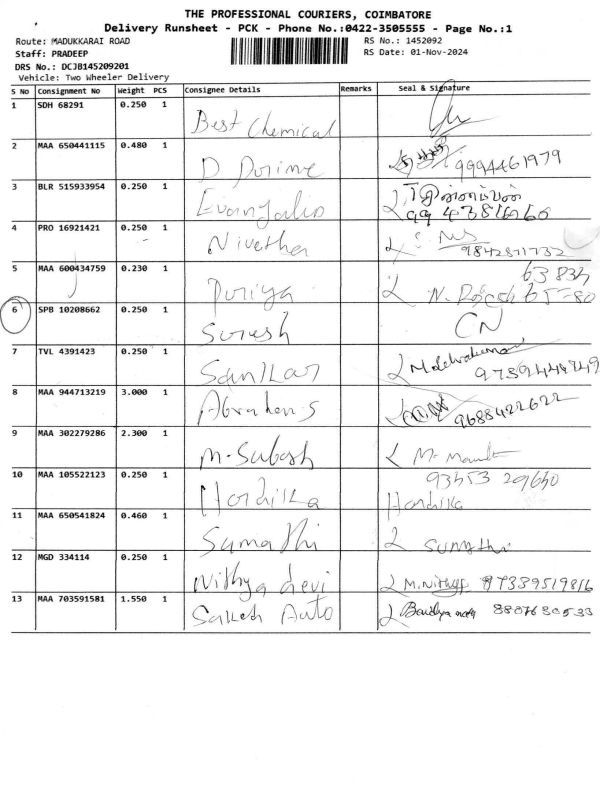 THE PROFESSIONAL COURIERS, COIMBATORE
Delivery Runsheet - PCK - Phone No.:0422-3505555 - Page No.:1
Route: MADUKKARAI ROAD RS No.: 1452092
Staff: PRADEEP RS Date: 01-Nov-2024
DRS No.: DCJB145209201
Vehicle: Two Wheeler Delivery
S No Consignment No Weight PCS Consignee Details Remarks Seal & Signature
1 SDH 68291 0.250 1 Best Chemical
2 MAA 650441115 0.480 1 D 9994461979
3 BLR 515933954 0.250 1
4 PRO 16921421 0.250 1 Nivetha
5 MAA 600434759 0.230 1
6 SPB 10208662 0.250 1 Suresh CN
7 TVL 4391423 0.250 1 Sankar
8 MAA 944713219 3.000 1 9688422622
9 MAA 302279286 2.300 1 M. Subash
10 MAA 105522123 0.250 1 Hardika Hardika
11 MAA 650541824 0.460 1 Sumathi
12 MGD 334114 0.250 1 Nithya devi M.Nithya
13 MAA 703591581 1.550 1 Auto